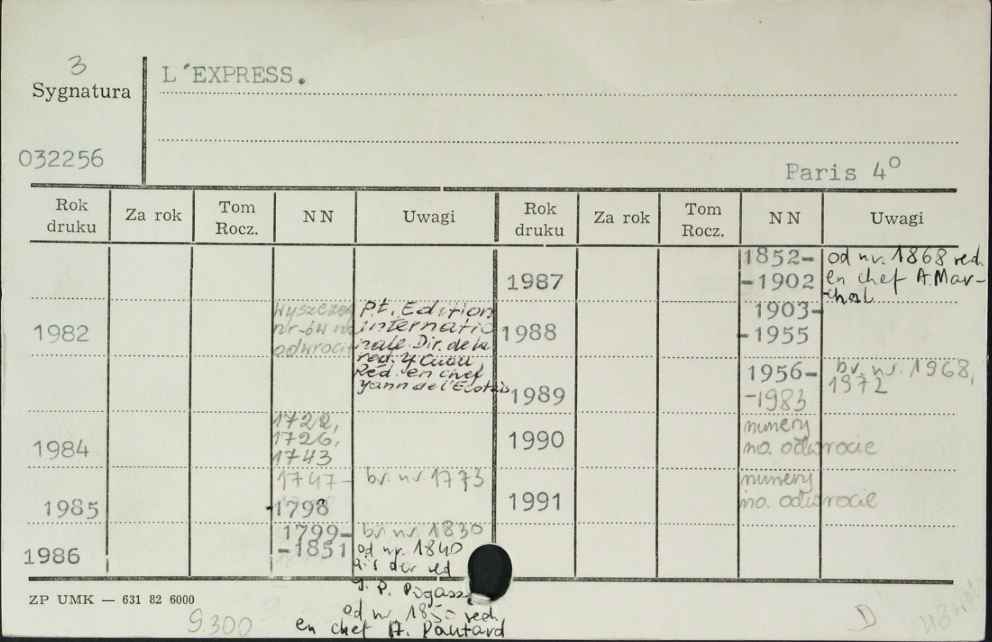 3
Sygnatura
L'EXPRESS.
032256
Paris 4°
Rok druku
Za rok
Tom Rocz.
NN
Uwagi
Rok druku
Za rok
Tom Rocz.
NN
Uwagi
1982
nr-ów na
odwrocie
pt. Edition
internatio
nale. Dir. de la
red. Y
Réd. en chef
Yann de l'Ecotais
1984
1722,
1726,
1743
1985
1747-
-1798
br. nr 1773
1986
1799-
-1851
br. nr. 1830
od nr. 1840
dir der red
J. P.
od nr. 1850 red.
en chef A. Pautard
1987
1852-
-1902
od nr. 1868 red.
en chef A. Mar-
chal
1988
1903-
-1955
1989
1956-
-1983
br. nr. 1968,
1972
1990
numery
na odwrocie
1991
numery
na odwrocie
ZP UMK — 631 82 6000
9.300
D